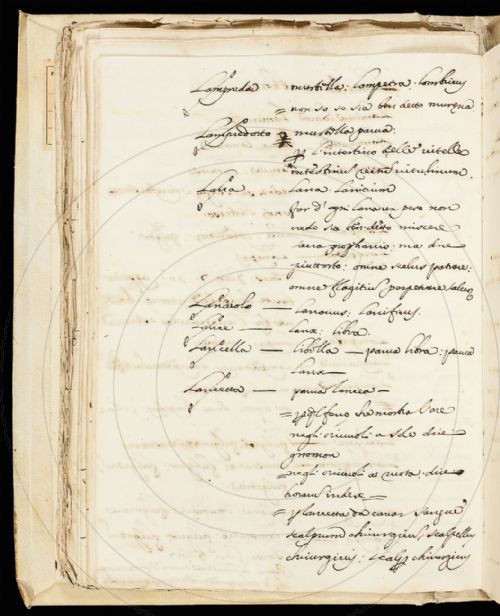 Lampreda mustilla: lampetra. lombricus
= non so se sia ben detto murena
Lampredotto mustilla parva.
p l'intestino delle vitelle
intestinus vitulinum.
Lana. lanicium
far d'ogni lana un peso non
credo sia ben detto miscere
sacra prophanis: ma dire
piuttosto: omne scelus patrare.
omne flagitium perpetrare
Lanaiolo — lanarius: lanificus.
Lance — lanx. libra.
Lancella — libella — parva libra: parva
lanx —
Lancetta — parva lancea —
= p quel ferro che mostra l'ore
negli oriuoli a sole dire
gnomon
= negli oriuoli a ruota. dire
horarius index =
= p lancetta da cavar sangue
scalprum chirurgicum, scalpellus
chirurgicus: chirurgicus